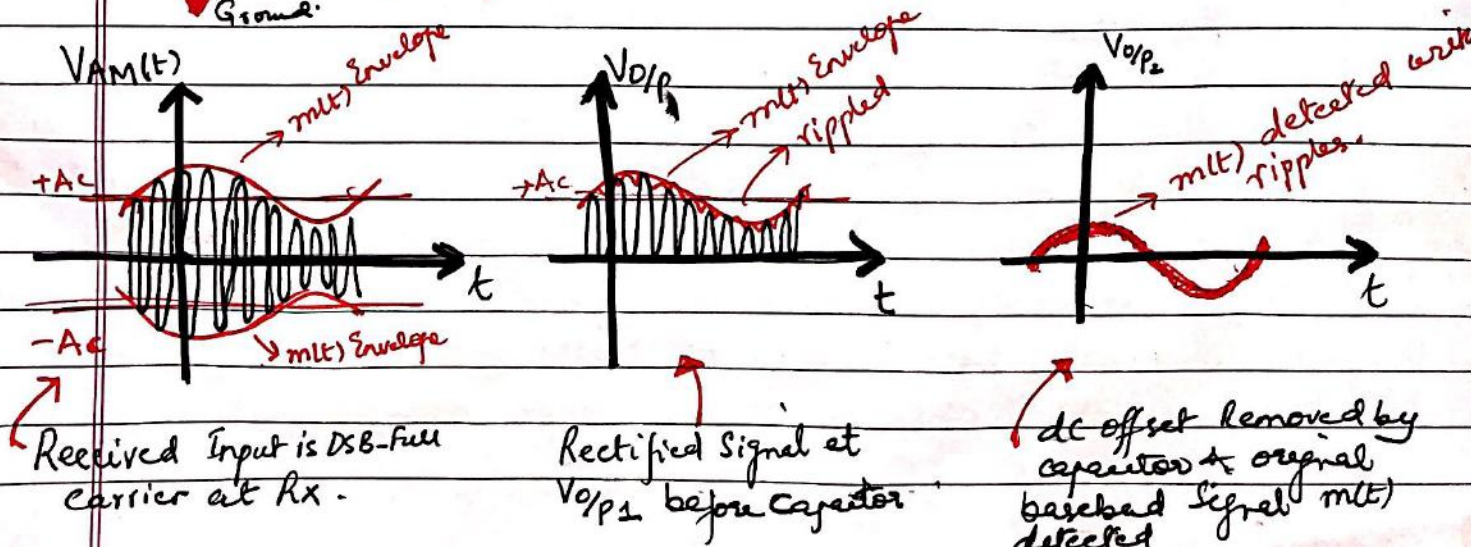 Ground.
VAM(t)
m(t) Envelope
+Ac
t
-Ac
m(t) Envelope
Received Input is DSB-Full
carrier at Rx.
VO/P1
m(t) Envelope
rippled
+Ac
t
Rectified Signal at
VO/P1 before Capacitor.
VO/P2
m(t) detected with
ripples.
t
dc offset Removed by
capacitor & orignal
baseband Signal m(t)
detected